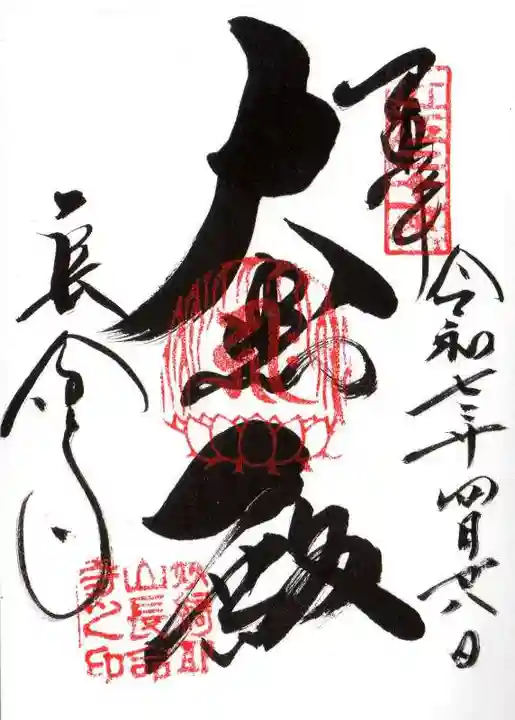 令和七年四月廿八日
大悲殿
長命寺
姨綺耶
山長命
寺之印